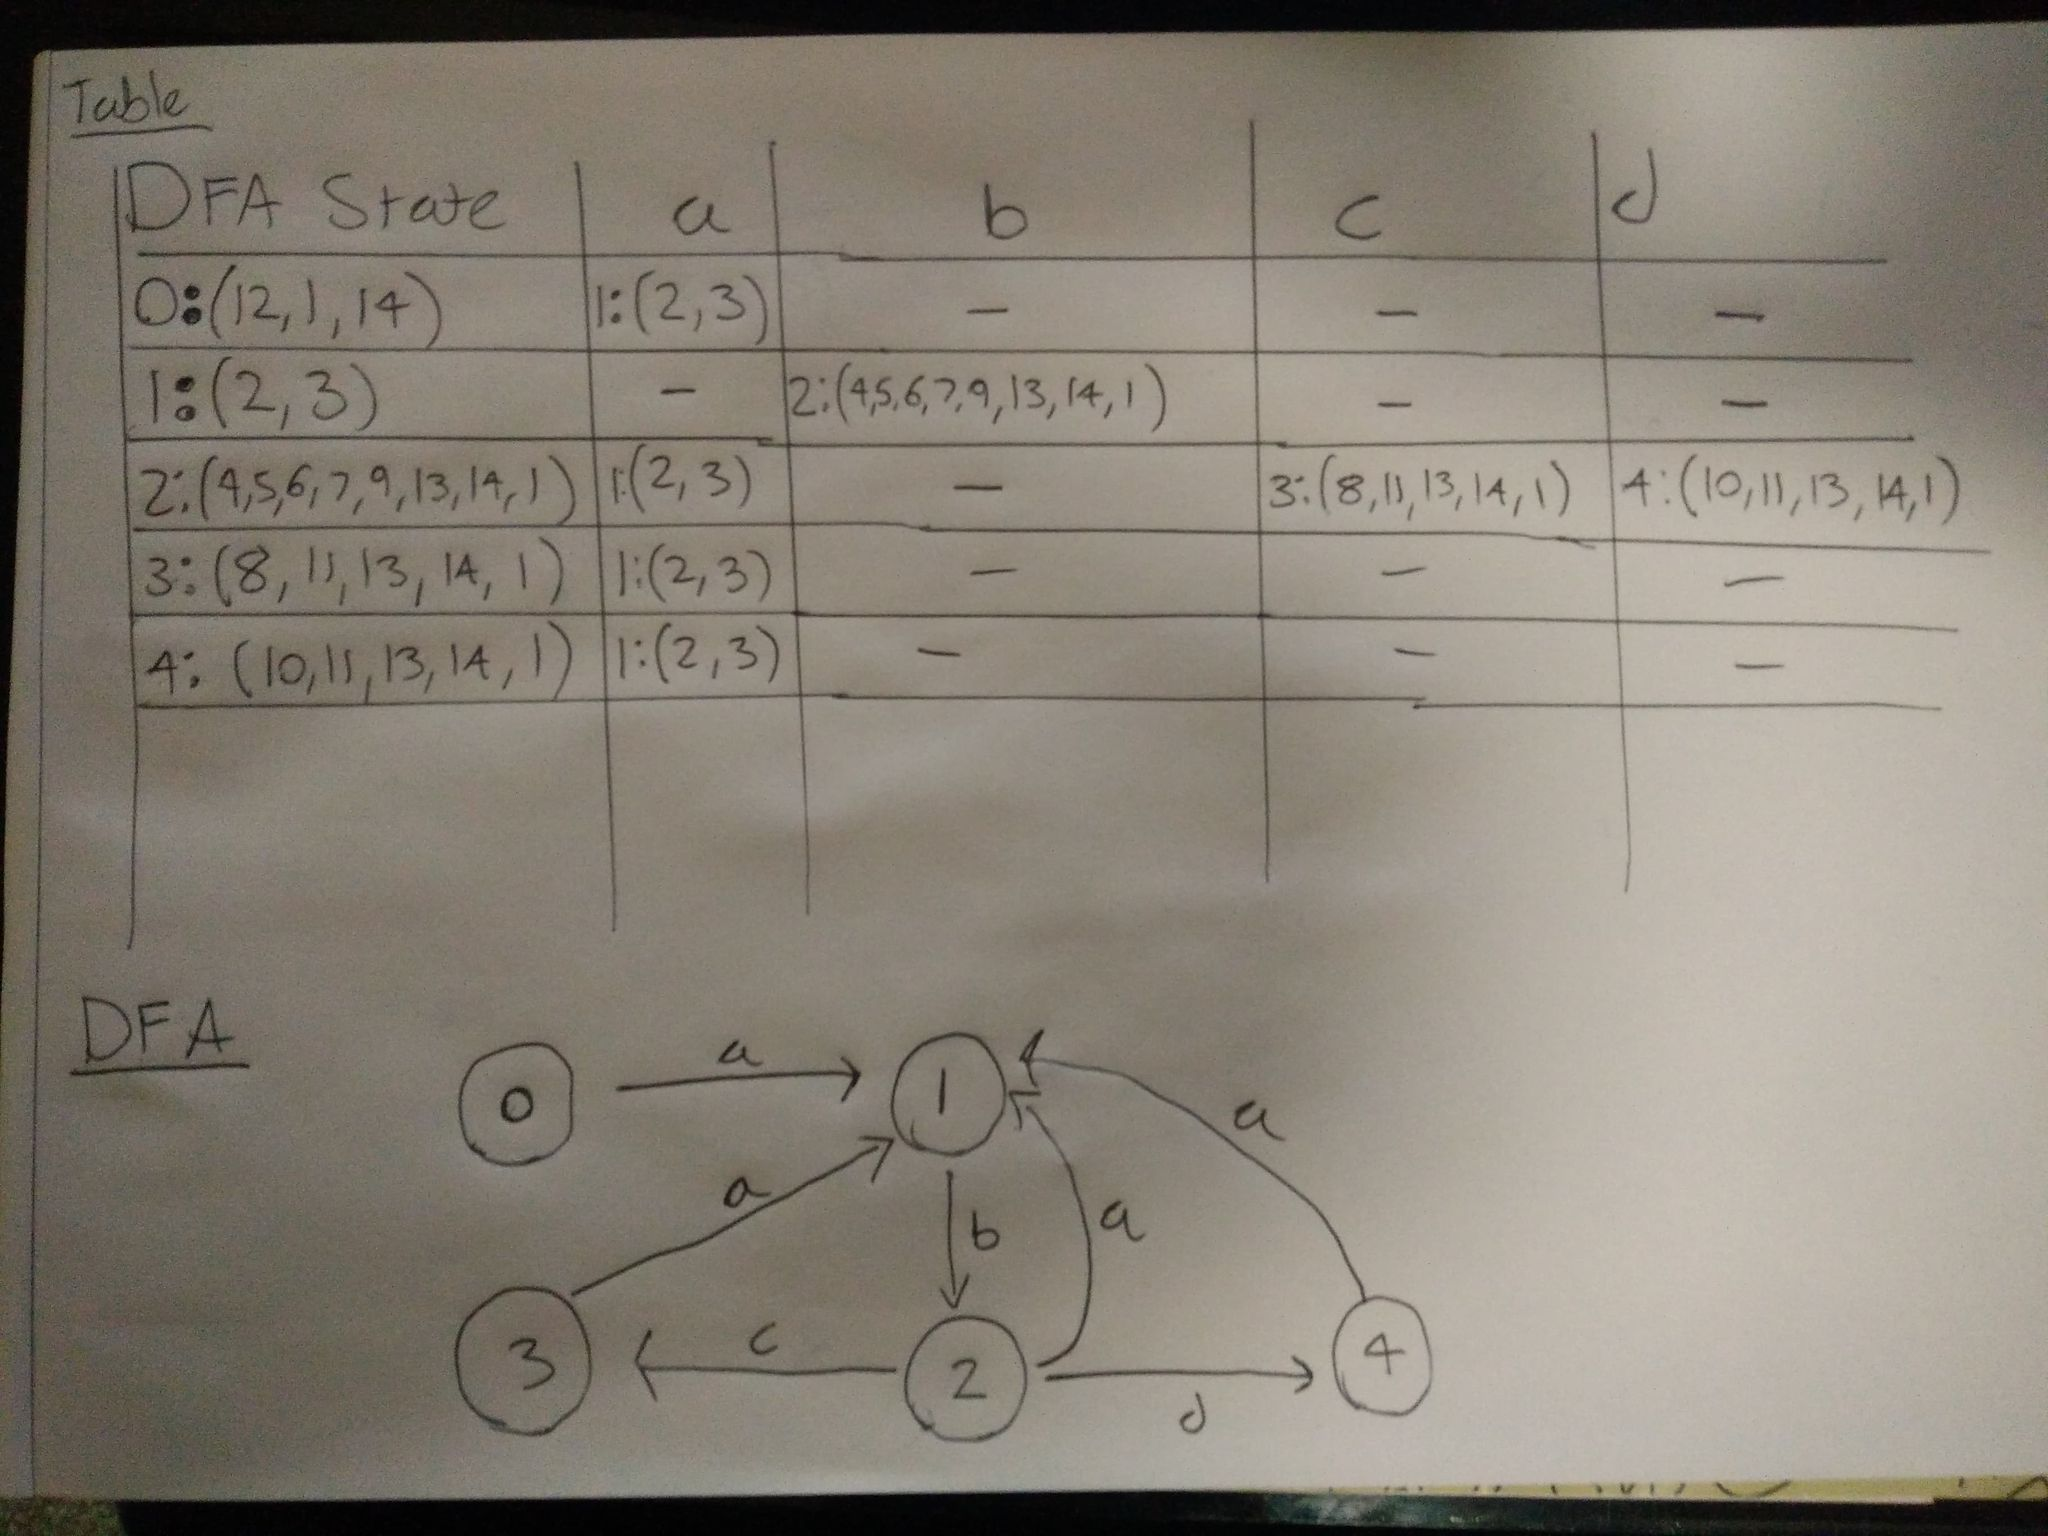 Table
DFA State a b c d
0:(12,1,14) 1:(2,3) - - -
1:(2,3) - 2:(4,5,6,7,9,13,14,1) - -
2:(4,5,6,7,9,13,14,1) 1:(2,3) - 3:(8,11,13,14,1) 4:(10,11,13,14,1)
3:(8,11,13,14,1) 1:(2,3) - - -
4:(10,11,13,14,1) 1:(2,3) - - -
DFA
0 a 1
a b a a
3 c 2 d 4